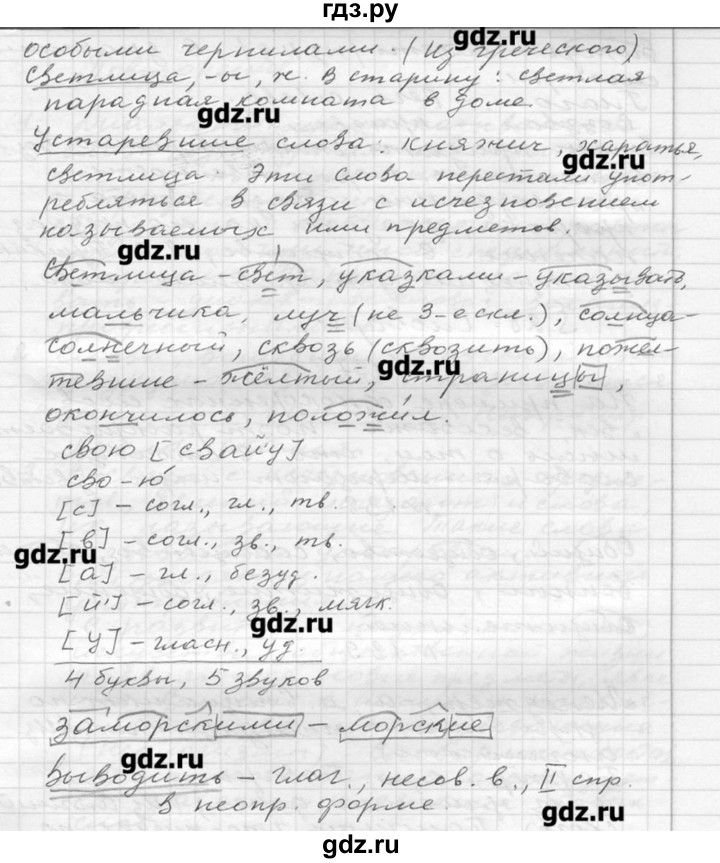 гдз.ру
особыми чернилами. (Из греческого)
Светлица, -ы, ж. В старину: светлая
парадная комната в доме.
Устаревшие слова: княжич, харатья,
светлица. Эти слова перестали упот-
ребляться в связи с исчезновением
называемых ими предметов.
Светлица - свет, указками - указывать,
мальчика, луч (не 3-е скл.), солнца -
солнечный, сквозь (сквозить), пожел-
тевшие - жёлтый, страницы,
окончилось, положил.
свою [свайу]
сво-ю
[с] - согл., гл., тв.
[в] - согл., зв., тв.
[а] - гл., безуд.
[й'] - согл., зв., мягк.
[у] - гласн., уд.
4 буквы, 5 звуков
заморскими - морские
Выводить - глаг., несов. в., II спр.
в неопр. форме
gdz.ru
gdz.ru
gdz.ru
gdz.ru
gdz.ru
gdz.ru
gdz.ru
gdz.ru
gdz.ru
gdz.ru
gdz.ru